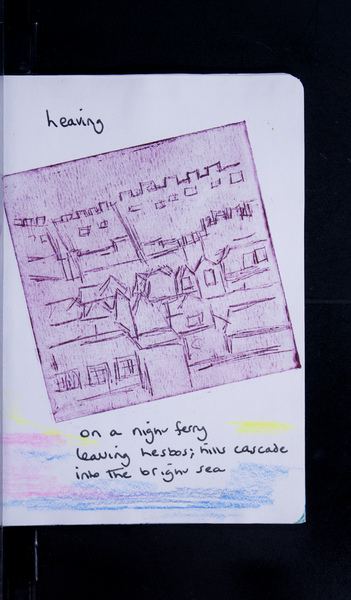 Leaving
on a night ferry
leaving Lesbos; hills cascade
into the bright sea